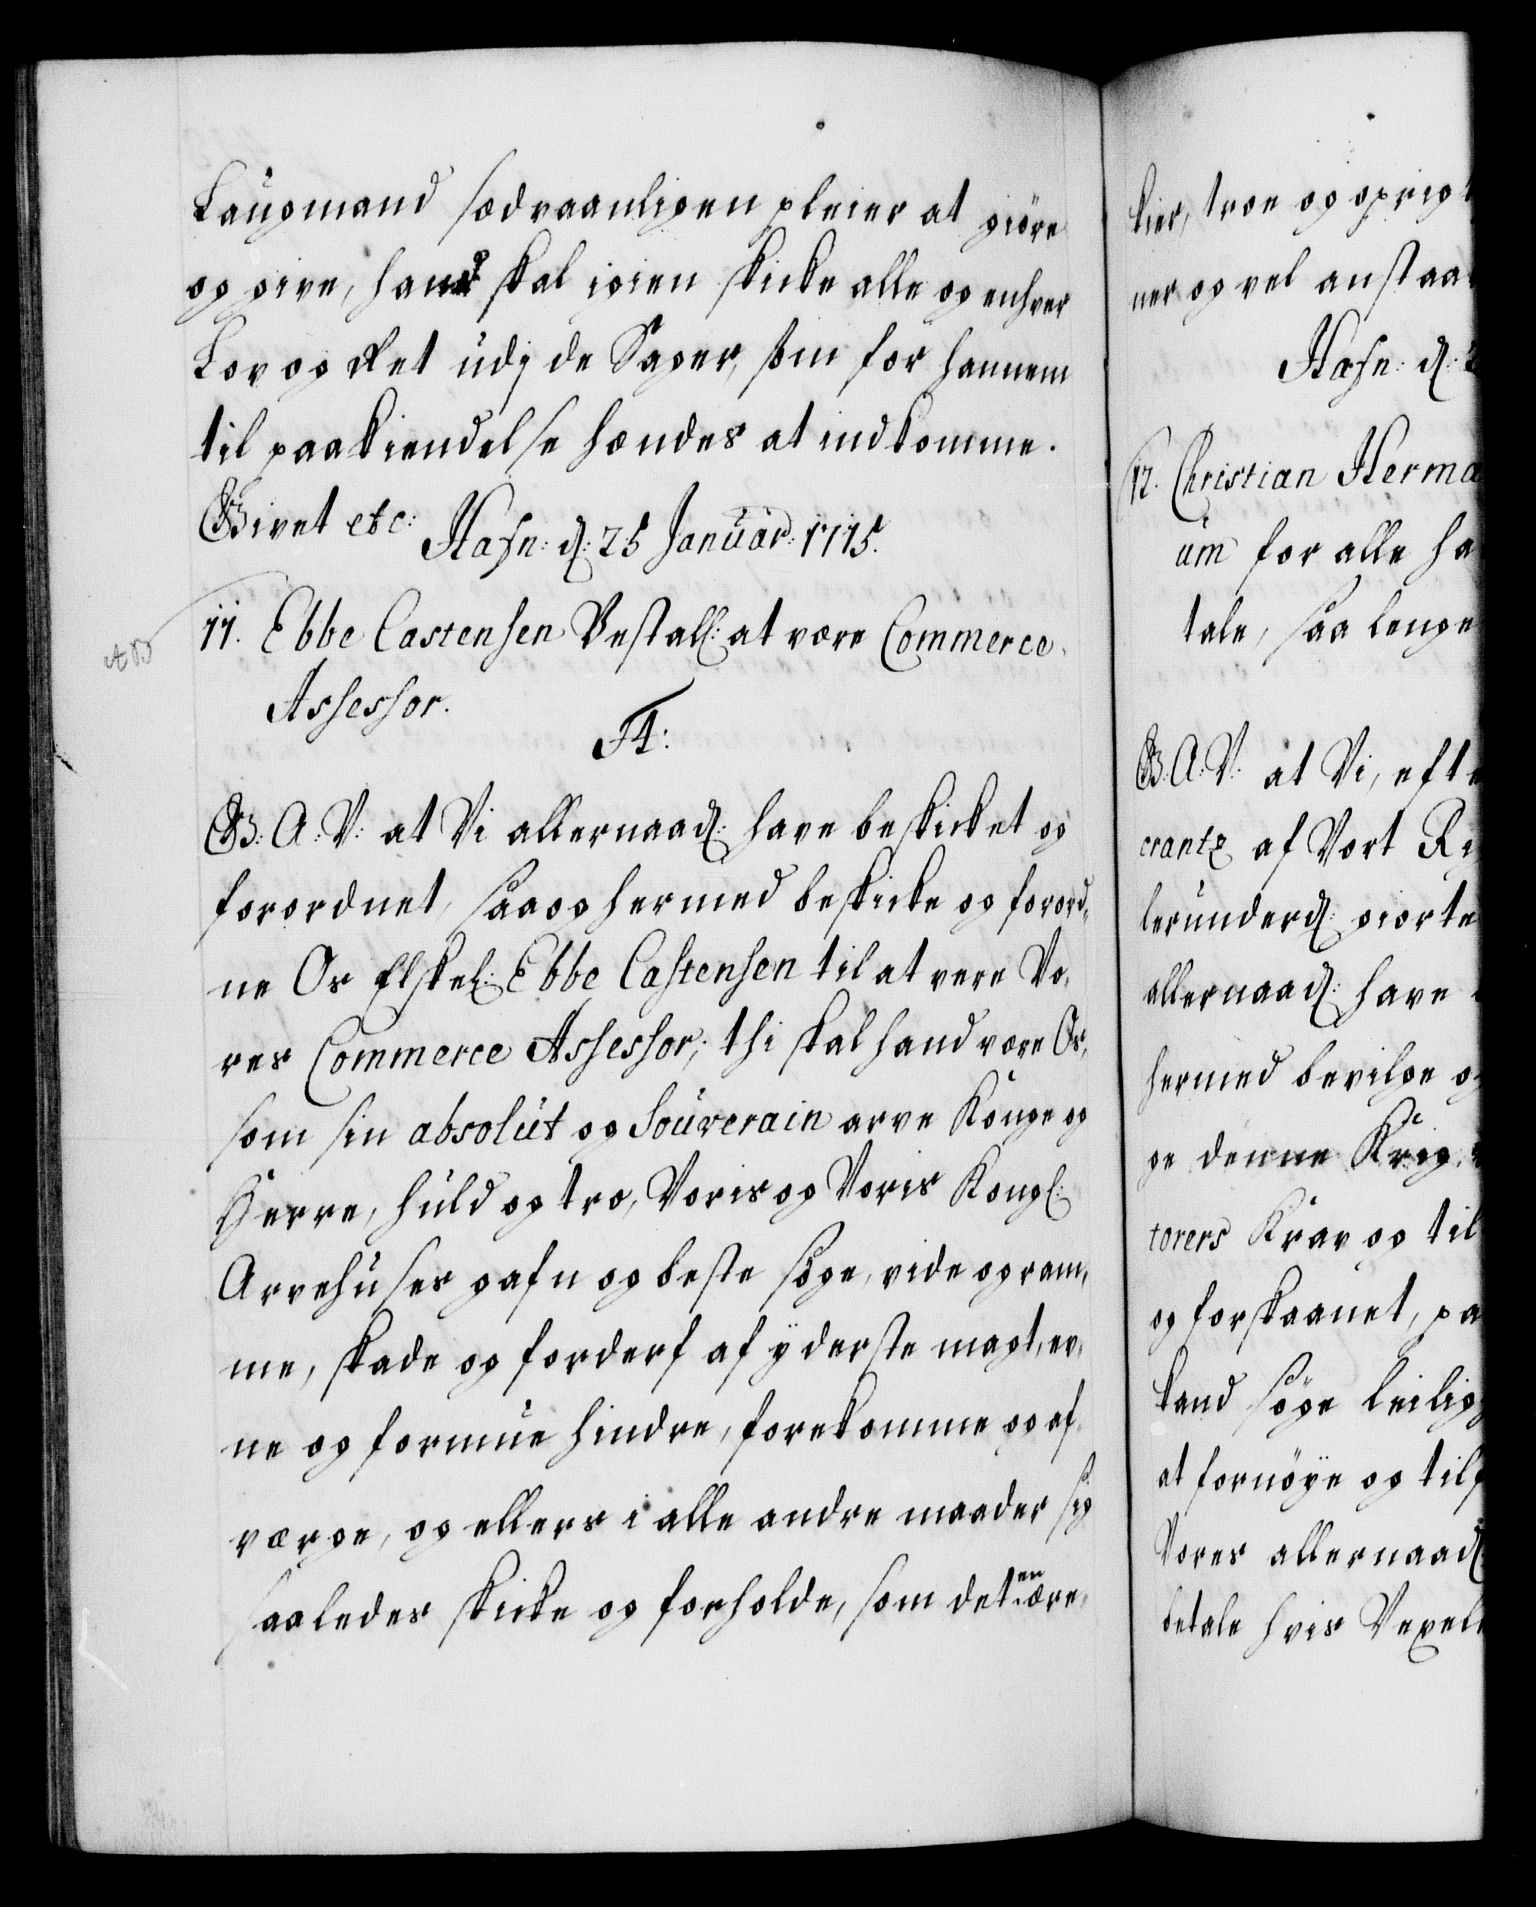 Laugmand sædvaanligen pleier at giöre
og give, hand skal igien skicke alle og enhver
Lov og Ret udj de Sager, som for hannem
til paakiendelse hændes at indkomme.
Givet etc:
Hafn: d: 25 Januar: 1715.
11. Ebbe Castensen Bestall: at være Commerce
Assessor.
F4:
G: A: V: at Vi allernaad: have beskicket og
forordnet, saa og hermed beskicke og forord,
ne Os Elskel: Ebbe Castensen til at vere Vo,
res Commerce Assessor; thi skal hand være Os,
som sin absolut og Souverain arve Konge og
Herre, huld og tro, Voris og Voris Kongl:
Arvehuses gafn og beste söge, vide og ram,
me, skade og forderf af yderste magt, ev,
ne og formue hindre, forekomme og af
værge, og ellers i alle andre maader sig
saaledes skicke og forholde, som det en ære,
kier, troe og oprigt
ner og vel anstaa
Hafn: d: 2
12. Christian Herma
um for alle ha
tale, saa lenge
G. A: V: at Vi, efte
crantz af Vort Ri
lerunderd: giorte
allernaad: have
hermed bevilge og
ge denne Krig
torers Krav og til
og forskaanet, pa
kand söge leilig
at fornöye og tilf
Vores allernaad:
betale hvis Vexel